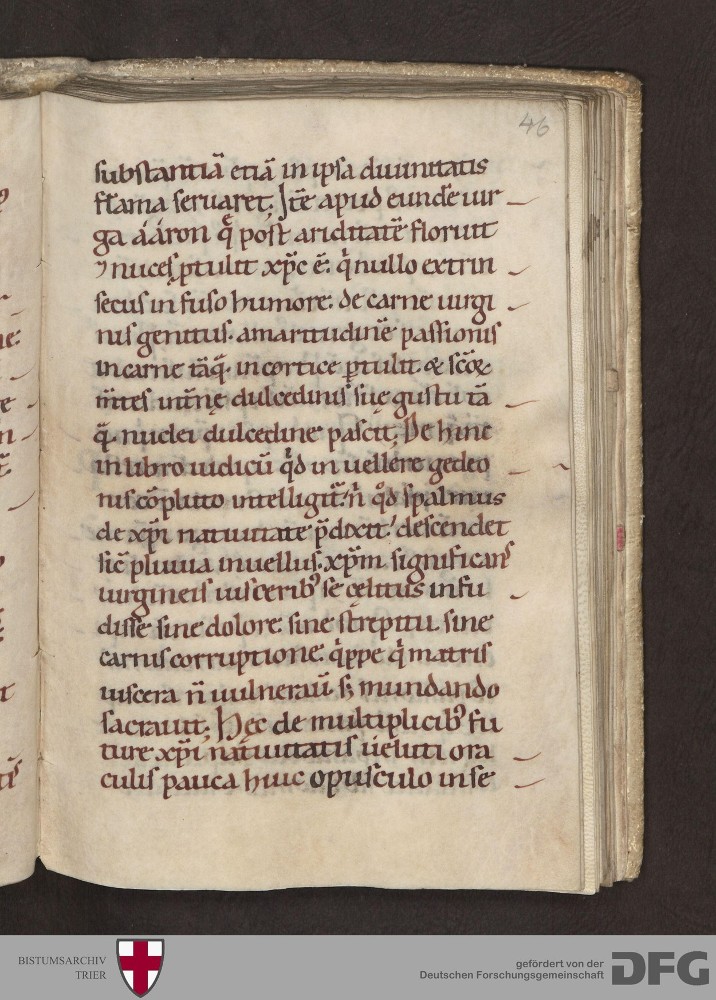 46
substantiā etiā in ipsa diuinitatis
flāma seruaret; Itē apud eundē uir
ga ááron q̄ post ariditatē floruit
⁊ nuces ꝑtulit xp̄c ē. qͥ nullo extrin
secus infuso humore. de carne uirgi
nis genitus. amaritudinē passionis
in carne tāq̄. in cortice ꝑtulit. & sc̄oꝝ
m̄tes int̄nę dulcedinis suę gustu tā
q̄. nuclei dulcedine pascit; De hinc
in libro iudicū qd̄ in uellere gedeo
nis cōpluto intelligit̄. n̄ qͦd spalmus
de xp̄i natiuitate p̄dixit. descendet
sic̄ pluuia in uellus. xp̄m significans
uirgineis uisceribꝰ se cęlitus infu
disse sine dolore. sine strepitu. sine
carnis corruptione. qͥppe qͥ matris
uiscera n̄ uulnerauͥ. sꝫ mundando
sacrauit; Hęc de multiplicibꝰ fu
turę xp̄i natiuitatis ueluti ora
culis pauca huic opusculo inse
BISTUMSARCHIV
TRIER
gefördert von der
Deutschen Forschungsgemeinschaft
DFG